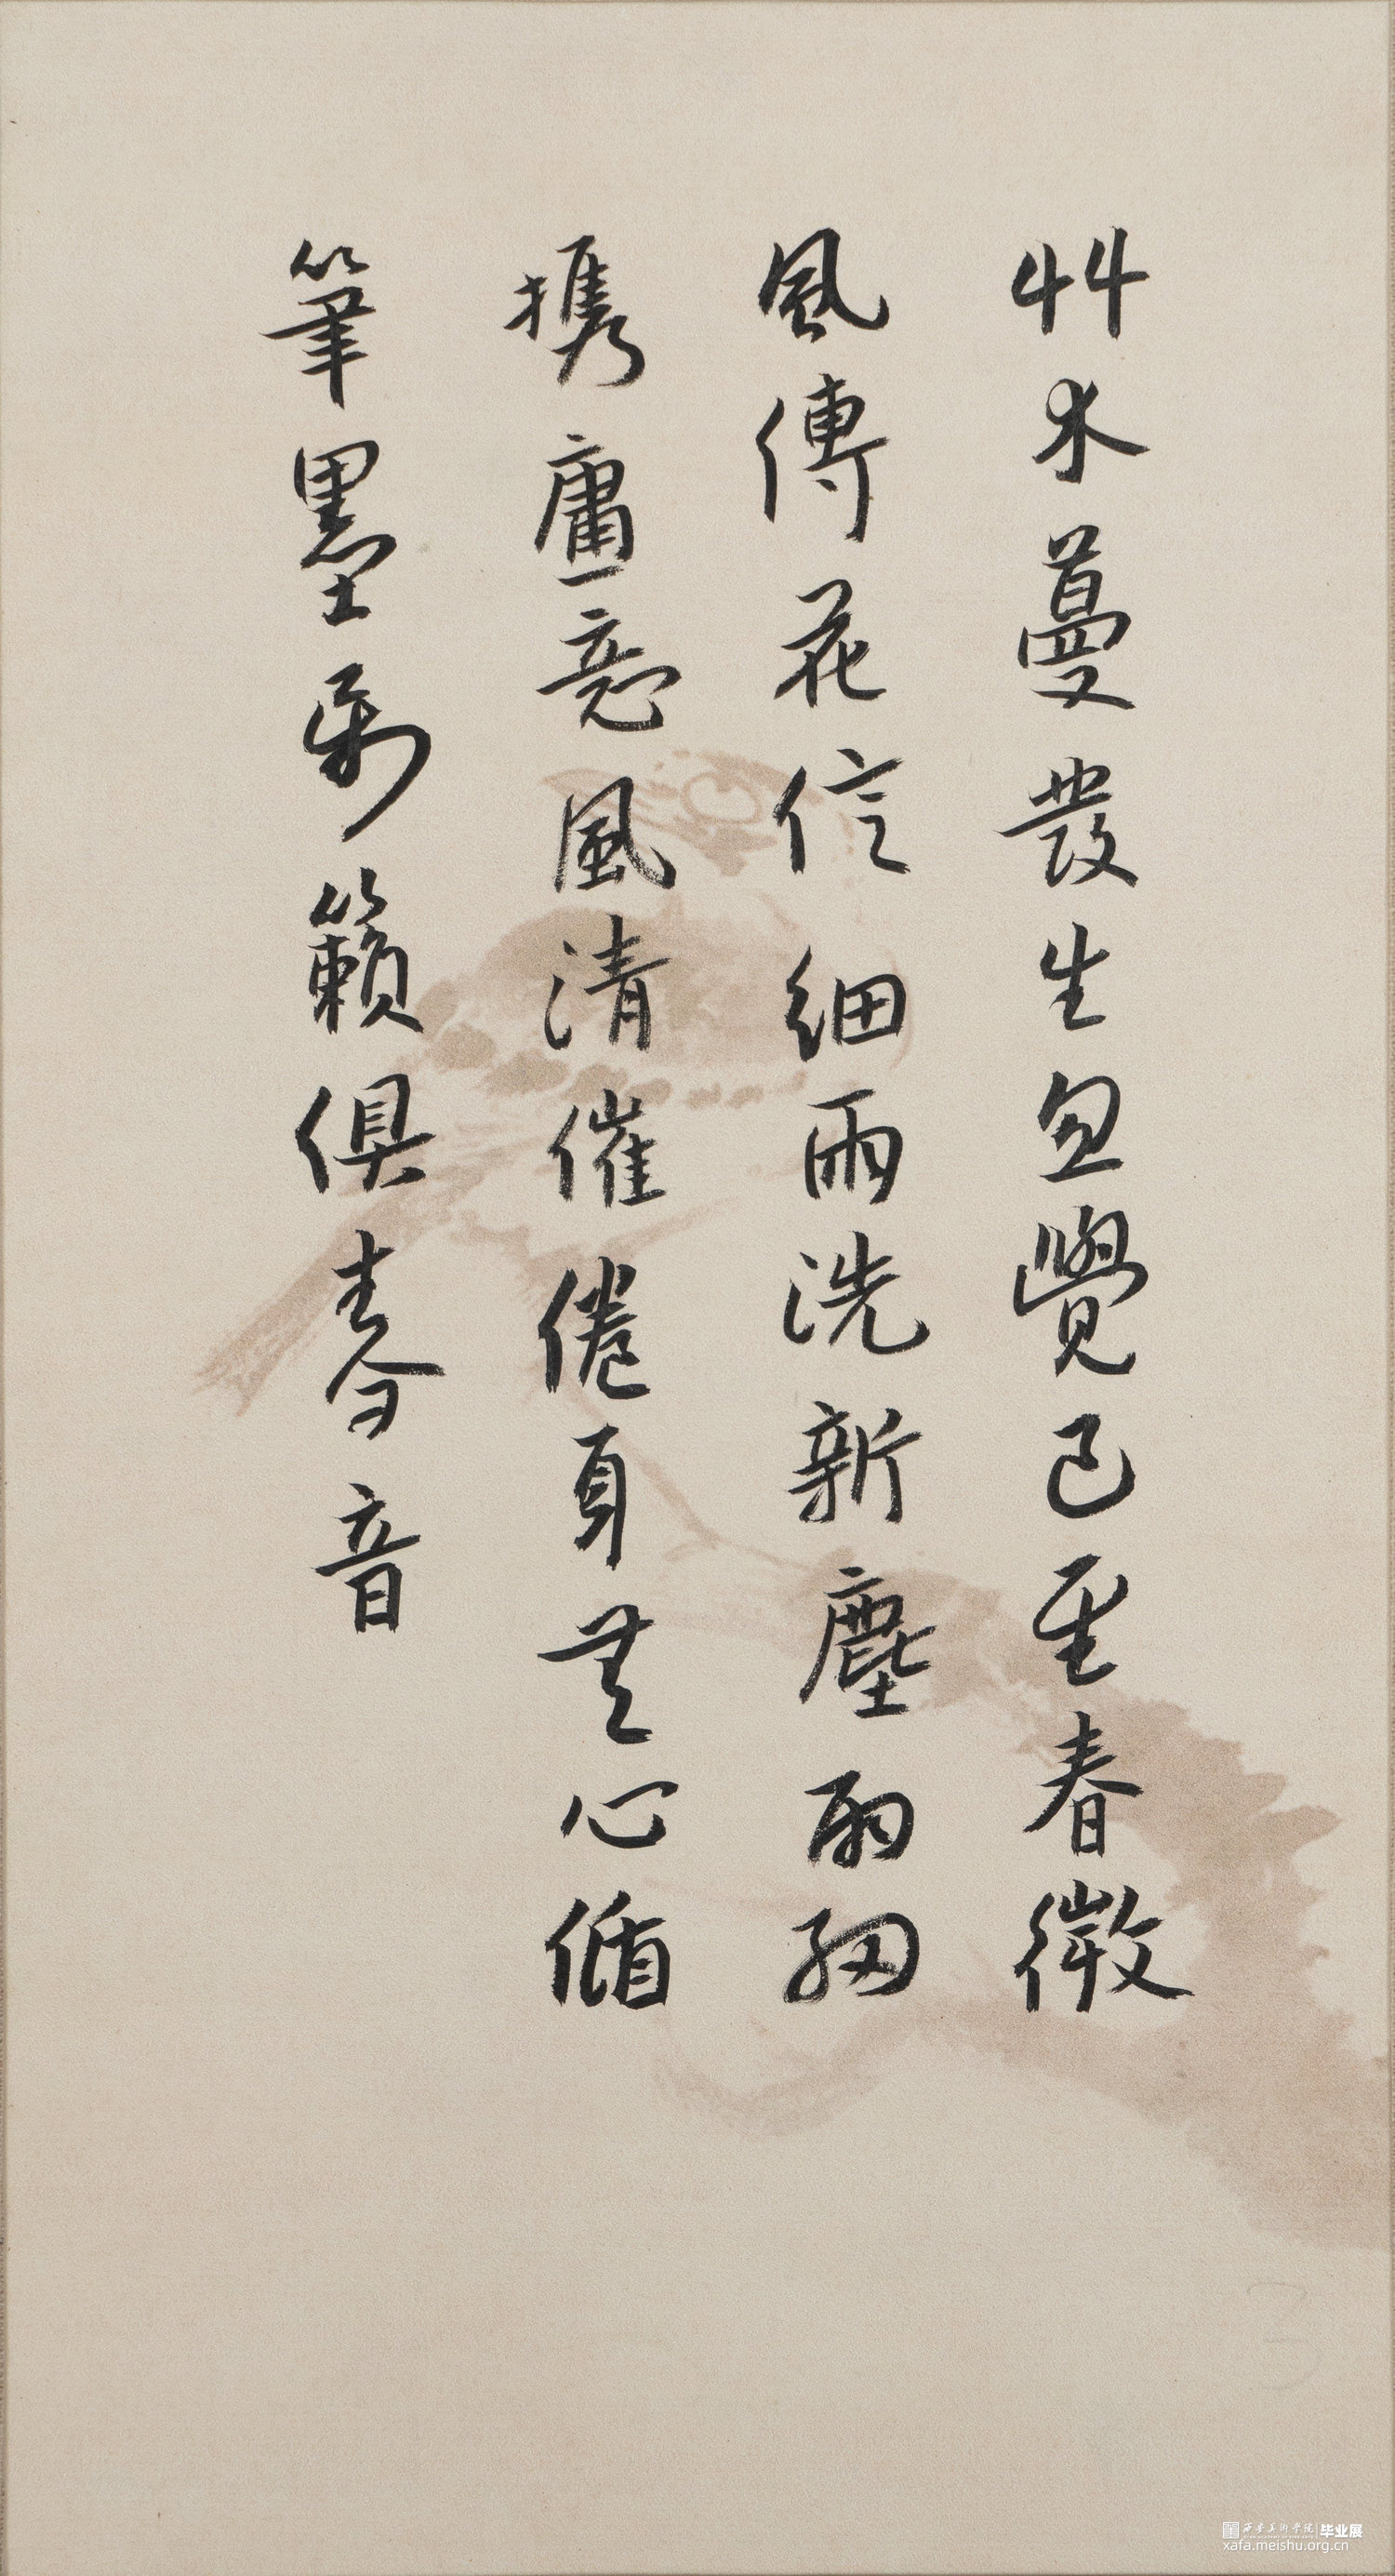 艸木蔓發生忽覺已至春微
風傳花信細雨洗新塵雨細
攜庸意風清催倦身無心循
筆墨萬籟俱春音
西安美術學院 毕业展
xafa.meishu.org.cn